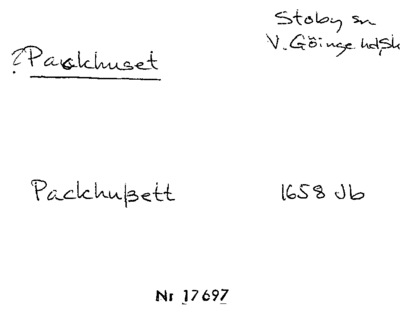 Stoby sn
V. Göinge hd, Sk
?Packhuset
Packhuβett 1658 Jb
Nr 17697